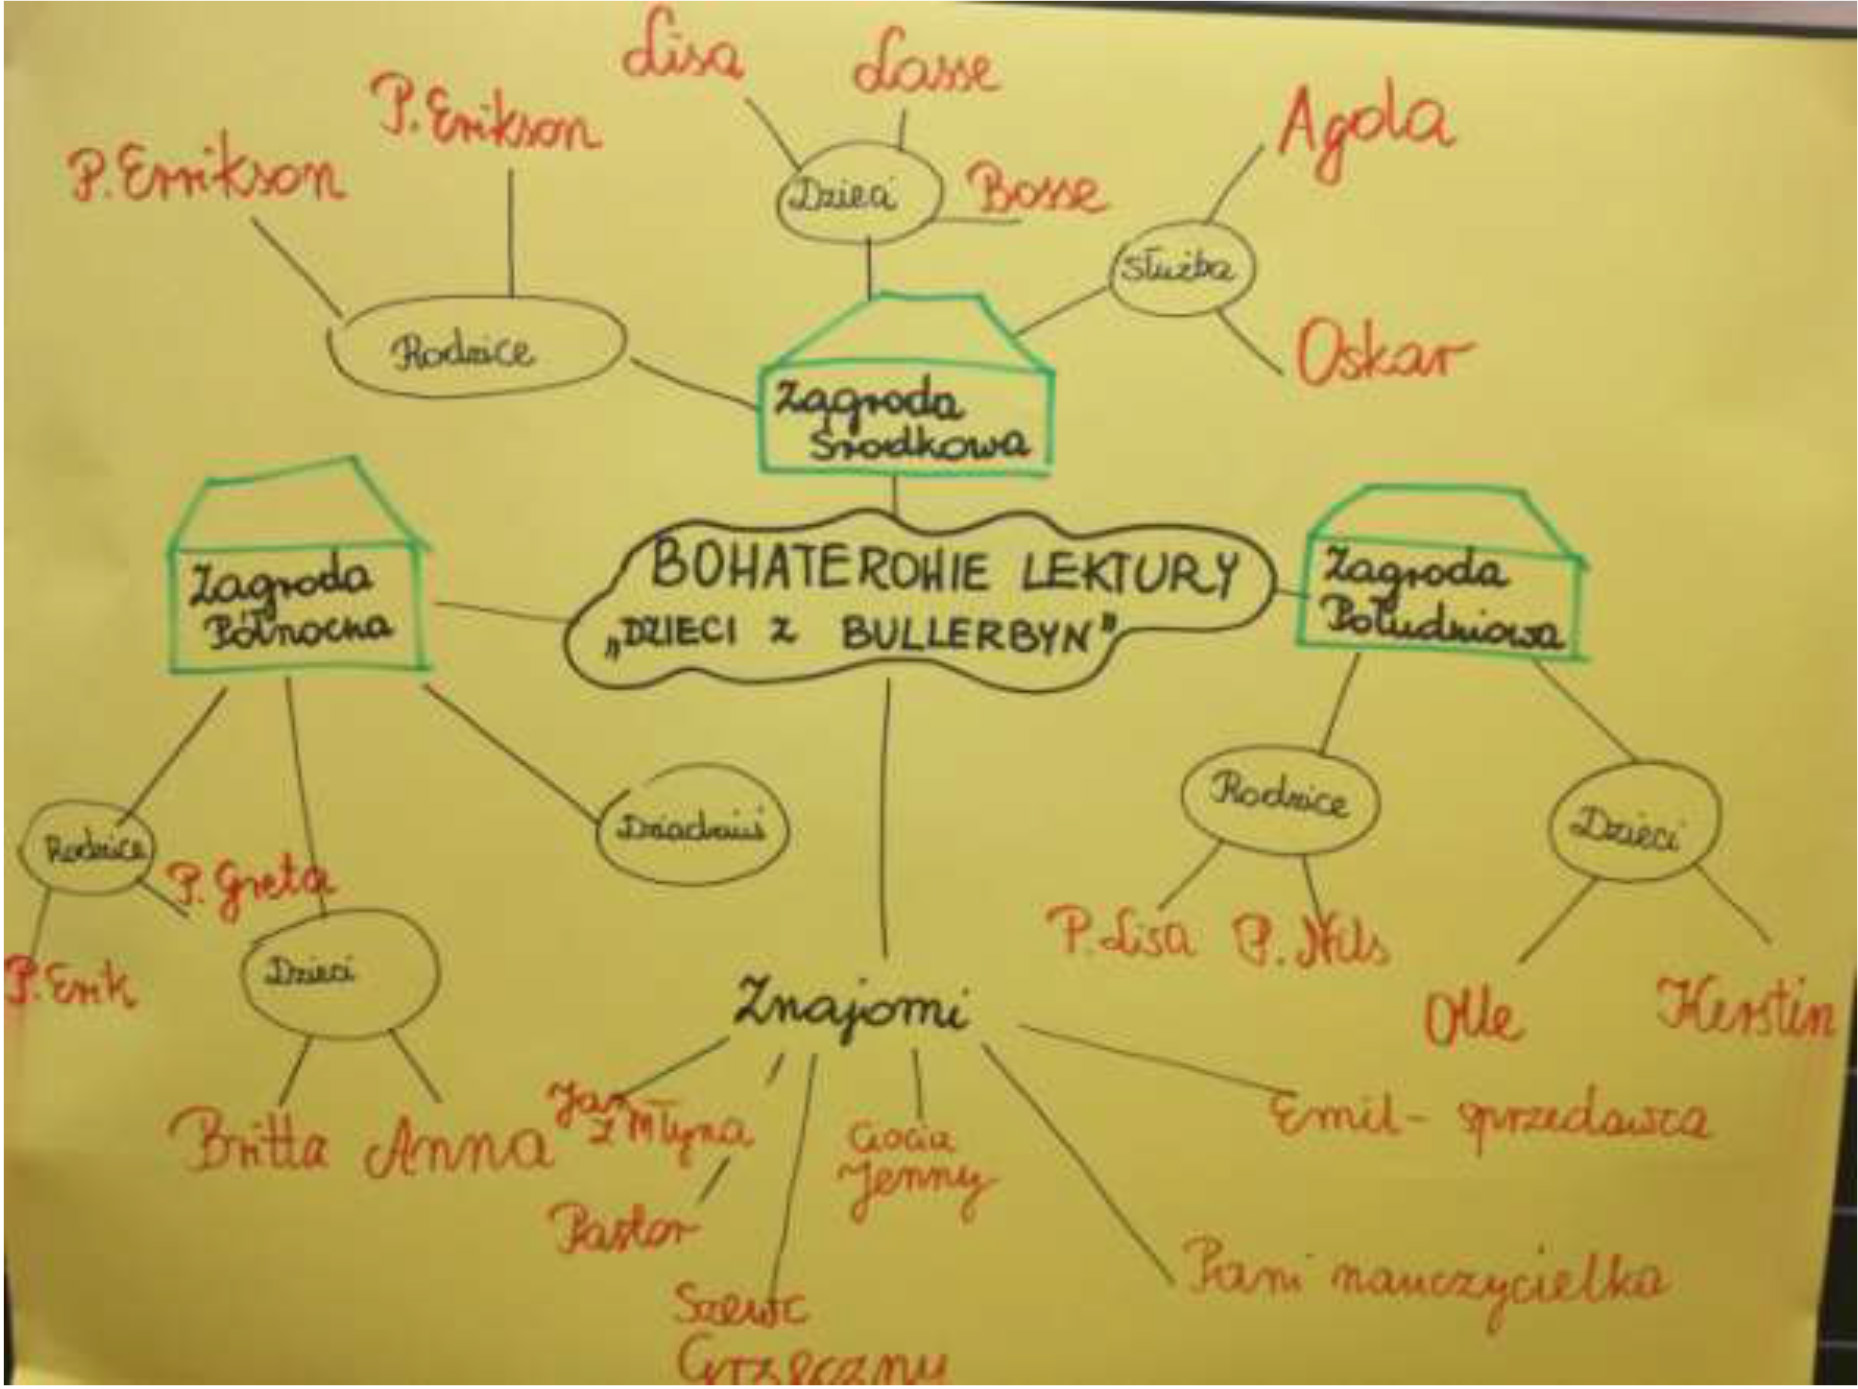 Lisa
Lasse
P. Erikson
P. Errikson
Agda
Dzieci
Bosse
Służba
Rodzice
Oskar
Zagroda
Środkowa
Zagroda
Północna
BOHATEROWIE LEKTURY
„DZIECI Z BULLERBYN"
Zagroda
Południowa
Rodzice
Dziadziuś
Rodzice
Dzieci
P. Greta
P. Erik
Dzieci
P. Lisa
P. Nils
Olle
Kerstin
Znajomi
Britta
Anna
Jan
z Młyna
Ciocia
Jenny
Emil - sprzedawca
Pastor
Pani nauczycielka
Szewc
Grzeczny